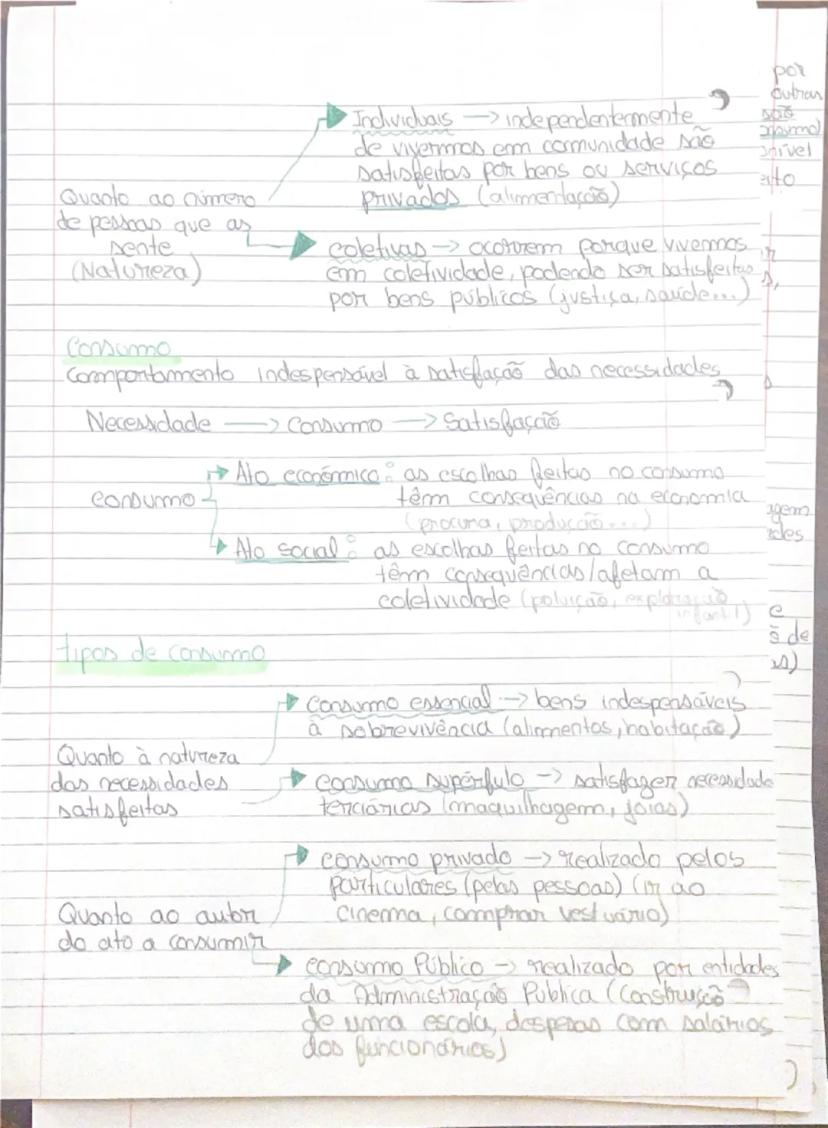 Individuais → independentemente
de vivermos em comunidade são
satisfeitas por bens ou serviços
privados (alimentação)
Quanto ao número
de pessoas que as
sente
(Natureza)
coletivas → ocorrem porque vivemos
em coletividade, podendo ser satisfeitas
por bens públicos (justiça, saúde...)
Consumo
Comportamento indespensável à satisfação das necessidades
Necessidade → Consumo → Satisfação
consumo
Ato económico: as escolhas feitas no consumo
têm consequências na economia
(procura, producção...)
Ato social: as escolhas feitas no consumo
têm consequências/afetam a
coletividade (poluição, exploração
infantil)
tipos de consumo
Quanto à natureza
das necessidades
satisfeitas
consumo essencial → bens indespensáveis
à sobrevivência (alimentos, habitação)
consumo supérfulo → satisfazer necessidade
terciárias (maquilhagem, joias)
Quanto ao autor
do ato a consumir
consumo privado → realizado pelos
particulares (pelas pessoas) (ir ao
cinema, comprar vestuário)
consumo Público → realizado por entidades
da Administração Pública (construção
de uma escola, despesas com salários
dos funcionários)
por
outras
são
nível
agem
e
s de